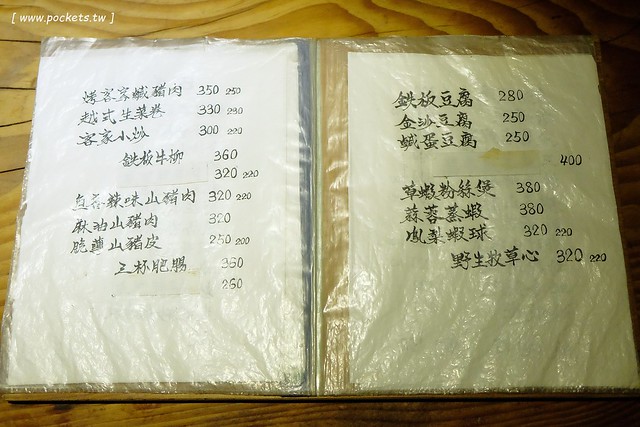 [ www.pockets.tw ]
烤客家鹹豬肉 350 250
越式生菜卷 330 230
客家小炒 300 220
鉄板牛柳 360
320 220
辣味山豬肉 320 220
麻油山豬肉 320
脆薑山豬皮 250 200
三杯肥腸 360
260
鉄板豆腐 280
金沙豆腐 250
鹹蛋豆腐 250
400
草蝦粉絲煲 380
蒜蓉蒸蝦 380
鳳梨蝦球 320 220
野生牧草心 320 220